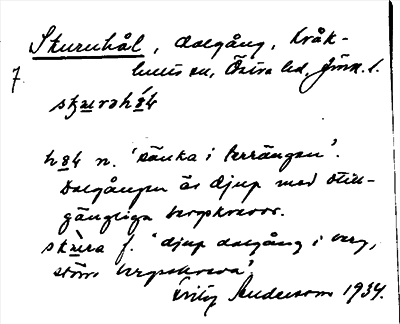 Skuruhål, dalgång, Kråk-
7 Östra hd, Jönk. l.
hål n. 'sänka i terrängen'.
Dalgången är djup med otill-
gängliga bergskrevor.
f. 'djup dalgång i berg,
större bergskreva'.
Fritz Andersson 1934.